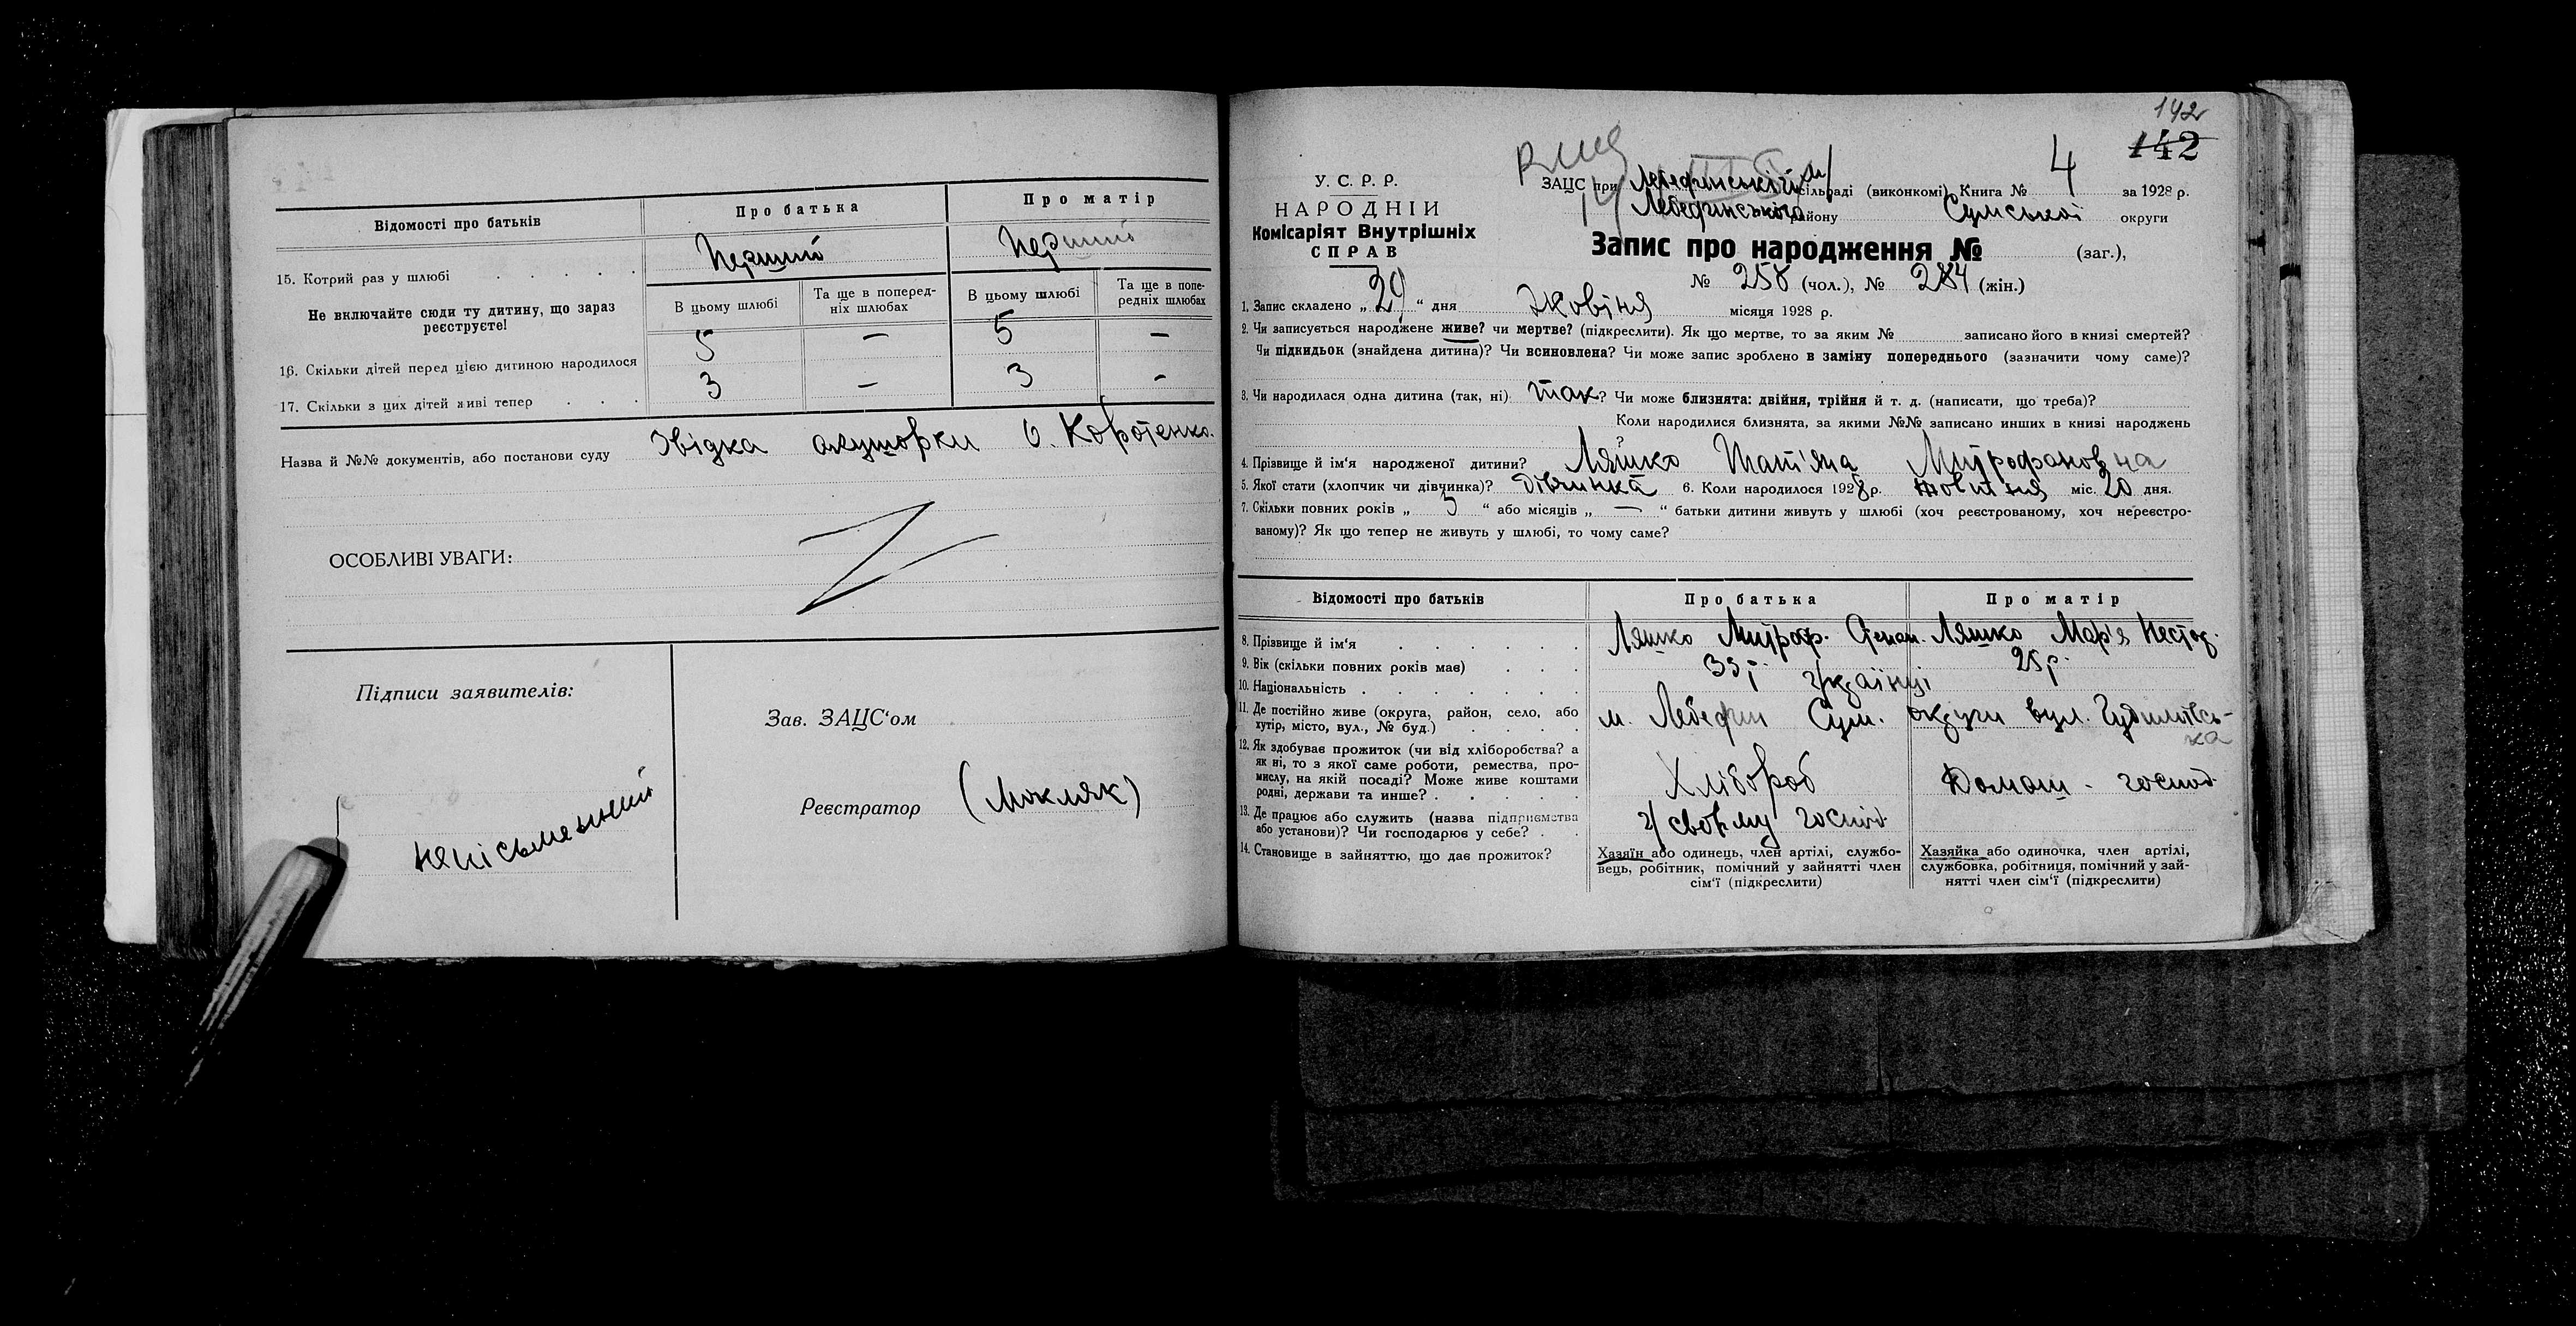 Відомості про батьків
Про батька
Про матір
15. Котрий раз у шлюбі . . . . .
Перший
Перший
Не включайте сюди ту дитину, що зараз реєструєте!
В цьому шлюбі
Та ще в попередніх шлюбах
В цьому шлюбі
Та ще в попередніх шлюбах
16. Скільки дітей перед цією дитиною народилося
5 — 5 —
17. Скільки з цих дітей живі тепер . . .
3 — 3 -
Назва й №№ документів, або постанови суду
Звідка акушорки О. Коротенко.
ОСОБЛИВІ УВАГИ:
Підписи заявителів:
неписьменний
Зав. ЗАЦС‘ом
Реєстратор (Мокляк)
142
142
У. С. Р. Р.
НАРОДНІЙ
Комісаріят Внутрішніх
СПРАВ
ЗАЦС при Лебединській м/сільраді (виконкомі) Книга № 4 за 1928 р.
Лебединського району Сумської округи
Запис про народження № (заг.),
№ 258 (чол.), № 284 (жін.)
1. Запис складено „29“ дня Жовтня місяця 1928 р.
2. Чи записується народжене живе? чи мертве? (підкреслити). Як що мертве, то за яким № записано його в книзі смертей?
Чи підкидьок (знайдена дитина)? Чи всиновлена? Чи може запис зроблено в заміну попереднього (зазначити чому саме)?
3. Чи народилася одна дитина (так, ні) так? Чи може близнята: двійня, трійня й т. д. (написати, що треба)?
Коли народилися близнята, за якими №№ записано инших в книзі народжень
?
4. Прізвище й ім‘я народженої дитини? Ляшко Тат'яна Митрофановна
5. Якої стати (хлопчик чи дівчинка)? Дівчинка 6. Коли народилося 1928 р. жовтня міс. 20 дня.
7. Скільки повних років „ 3 “ або місяців „ — “ батьки дитини живуть у шлюбі (хоч реєстрованому, хоч нереєстро-
ваному)? Як що тепер не живуть у шлюбі, то чому саме?
Відомості про батьків
Про батька
Про матір
8. Прізвище й ім‘я . . . . . .
Ляшко Митроф. Степан. Ляшко Мар'я Нестор.
9. Вік (скільки повних років має) . . .
33 р. 25 р.
10. Національність . . . . . . .
Українці
11. Де постійно живе (округа, район, село, або
хутір, місто, вул., № буд.) . . . .
м. Лебедин Сум. округи вул.
12. Як здобуває прожиток (чи від хліборобства? а
як ні, то з якої саме роботи, ремества, про-
мислу, на якій посаді? Може живе коштами
родні, держави та инше? . . . . .
Хлібороб
Домаш. господ.
13. Де працює або служить (назва підприємства
або установи)? Чи господарює у себе? . .
у своєму господ.
14. Становище в зайняттю, що дає прожиток?
Хазяїн або одинець, член артілі, службо-
вець, робітник, помічний у зайнятті член
сім‘ї (підкреслити)
Хазяйка або одиночка, член артілі,
службовка, робітниця, помічний у зай-
нятті член сім‘ї (підкреслити)